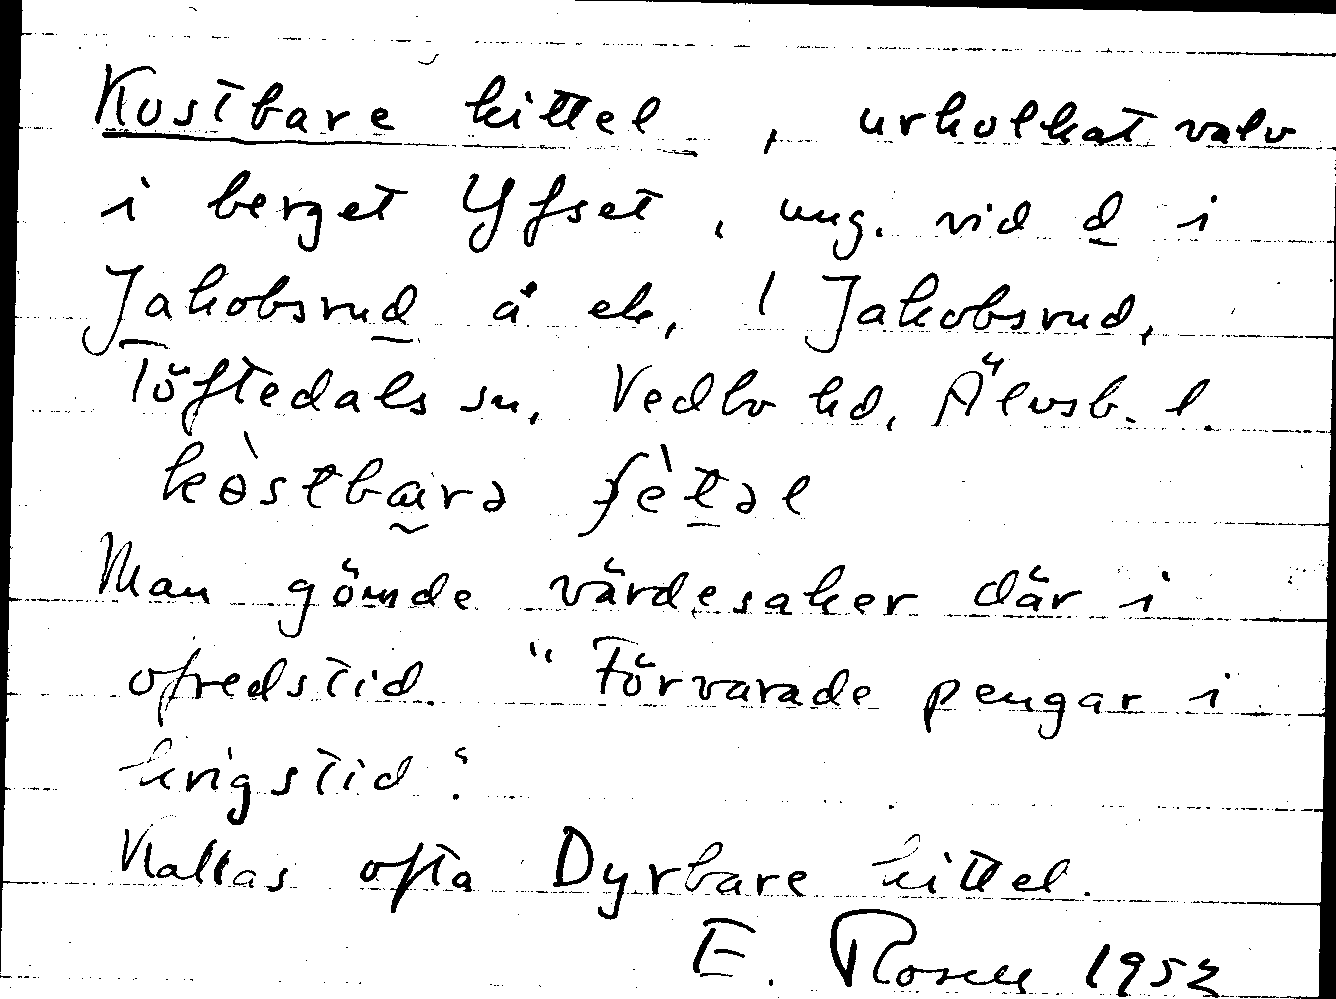 Kostbare kittel , urholkat valv
i berget Yfset , ung. vid d i
Jakobsrud å ek, / Jakobsrud,
Töftedals sn, Vedbo hd, Älvsb. l.
kòstbarə ʃètəl
Man gömde värdesaker där i
ofredstid. "Förvarade pengar i
krigstid".
Kallas ofta Dyrbare kittel.
E. Rosell 1952